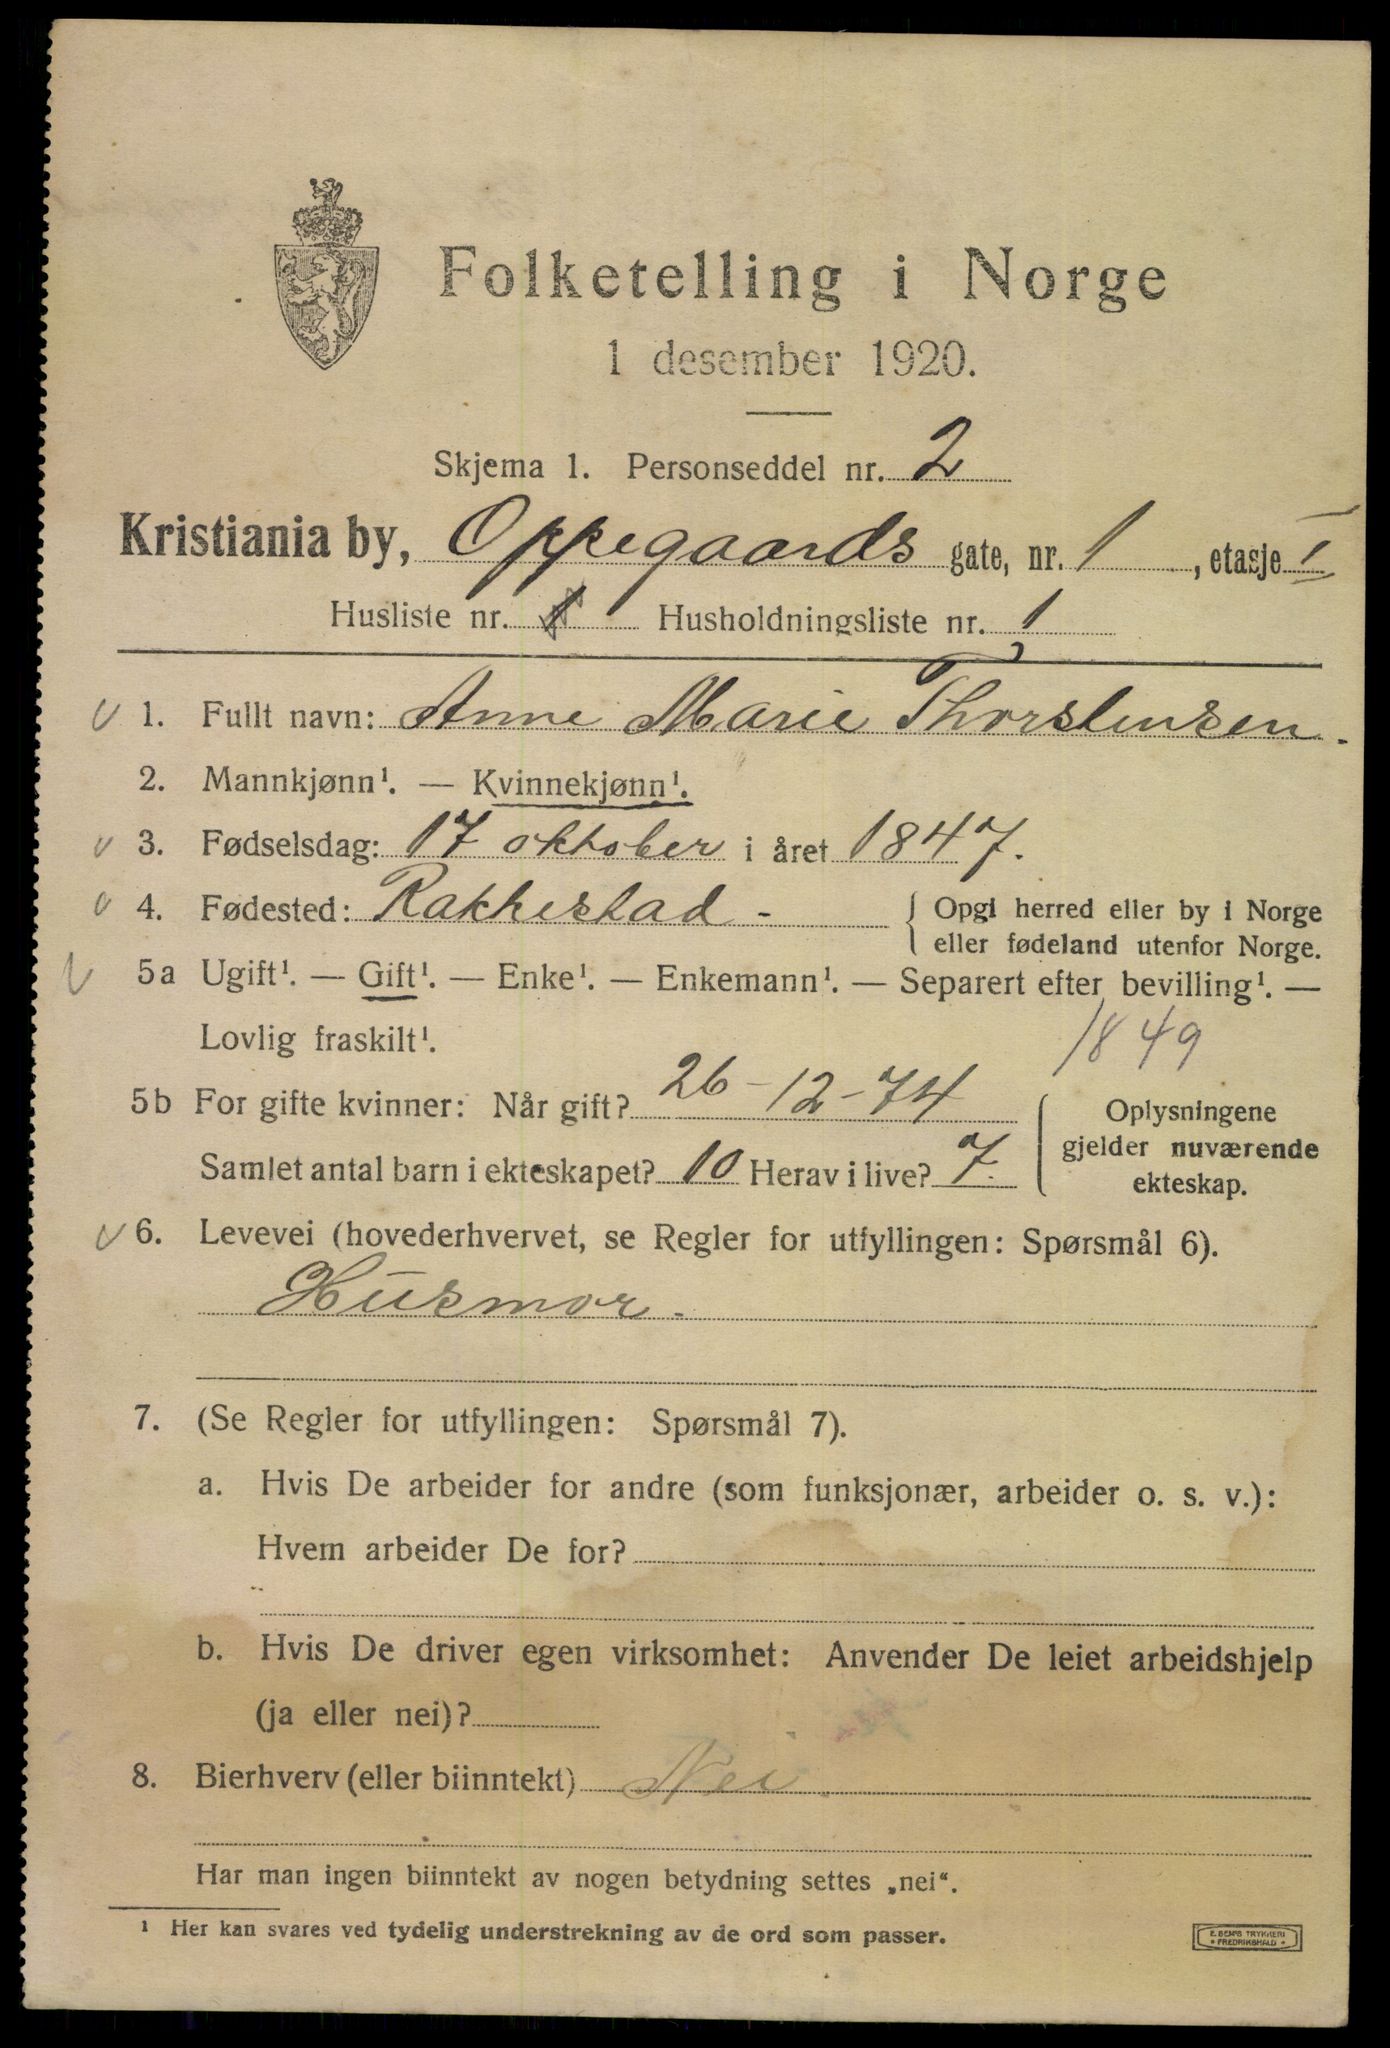 Folketelling i Norge
1 desember 1920.
Skjema 1. Personseddel nr. 2
Kristiania by, Oppegaards gate, nr. 1, etasje I
Husliste nr. 1 Husholdningsliste nr. 1
1. Fullt navn: Anne Marie Thorstensen.
2. Mannkjønn¹. — Kvinnekjønn¹.
3. Fødselsdag: 17 oktober i året 1847.
4. Fødested: Rakkestad - { Opgi herred eller by i Norge
eller fødeland utenfor Norge.
5a Ugift¹. — Gift¹. — Enke¹. — Enkemann¹. — Separert efter bevilling¹. —
Lovlig fraskilt¹. 1849
5b For gifte kvinner: Når gift? 26-12-74
Samlet antal barn i ekteskapet? 10 Herav i live? 7.
{ Oplysningene
gjelder nuværende
ekteskap.
6. Levevei (hovederhvervet, se Regler for utfyllingen: Spørsmål 6).
Husmor.
7. (Se Regler for utfyllingen: Spørsmål 7).
a. Hvis De arbeider for andre (som funksjonær, arbeider o. s. v.):
Hvem arbeider De for?
b. Hvis De driver egen virksomhet: Anvender De leiet arbeidshjelp
(ja eller nei)?
8. Bierhverv (eller biinntekt) Nei.
Har man ingen biinntekt av nogen betydning settes „nei".
¹ Her kan svares ved tydelig understrekning av de ord som passer.
E. SEM'S TRYKKERI
• FREDRIKSHALD •